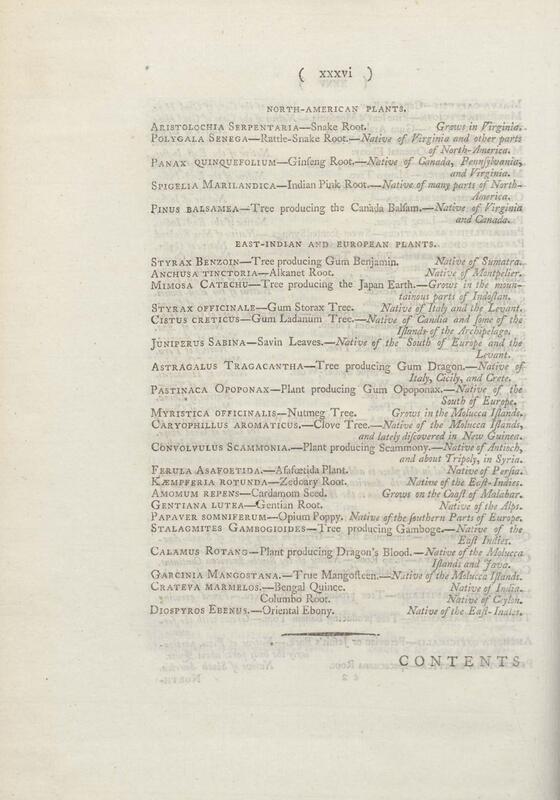 ( xxxvi )
NORTH-AMERICAN PLANTS.
ARISTOLOCHIA SERPENTARIA—Snake Root. Grows in Virginia.
POLYGALA SENEGA—Rattle-Snake Root.—Native of Virginia and other parts
of North-America.
PANAX QUINQUEFOLIUM—Ginſeng Root.—Native of Canada, Pennſylvania,
and Virginia.
SPIGELIA MARILANDICA—Indian Pink Root.—Native of many parts of North-
America.
PINUS BALSAMEA—Tree producing the Canada Balſam.—Native of Virginia
and Canada.
EAST-INDIAN AND EUROPEAN PLANTS.
STYRAX BENZOIN—Tree producing Gum Benjamin. Native of Sumatra.
ANCHUSA TINCTORIA—Alkanet Root. Native of Montpelier.
MIMOSA CATECHU—Tree producing the Japan Earth.—Grows in the moun-
tainous parts of Indoſtan.
STYRAX OFFICINALE—Gum Storax Tree. Native of Italy and the Levant.
CISTUS CRETICUS—Gum Ladanum Tree.—Native of Candia and ſome of the
Iſlands of the Archipelago.
JUNIPERUS SABINA—Savin Leaves.—Native of the South of Europe and the
Levant.
ASTRAGALUS TRAGACANTHA—Tree producing Gum Dragon.—Native of
Italy, Cicily, and Crete.
PASTINACA OPOPONAX—Plant producing Gum Opoponax.—Native of the
South of Europe.
MYRISTICA OFFICINALIS—Nutmeg Tree. Grows in the Molucca Iſlands.
CARYOPHILLUS AROMATICUS.—Clove Tree.—Native of the Molucca Iſlands,
and lately diſcovered in New Guinea.
CONVOLVULUS SCAMMONIA.—Plant producing Scammony.—Native of Antioch,
and about Tripoly, in Syria.
FERULA ASAFOETIDA.—Aſafœtida Plant. Native of Perſia.
KÆMPFERIA ROTUNDA—Zedoary Root. Native of the Eaſt-Indies.
AMOMUM REPENS—Cardamom Seed. Grows on the Coaſt of Malabar.
GENTIANA LUTEA—Gentian Root. Native of the Alps.
PAPAVER SOMNIFERUM—Opium Poppy. Native of the ſouthern Parts of Europe.
STALAGMITES GAMBOGIOIDES—Tree producing Gamboge.—Native of the
Eaſt Indies.
CALAMUS ROTANG—Plant producing Dragon's Blood.—Native of the Molucca
Iſlands and Java.
GARCINIA MANGOSTANA.—True Mangoſteen.—Native of the Molucca Iſlands.
CRATEVA MARMELOS.—Bengal Quince. Native of India.
Columbo Root. Native of Ceylon.
DIOSPYROS EBENUS.—Oriental Ebony. Native of the Eaſt-Indies.
CONTENTS